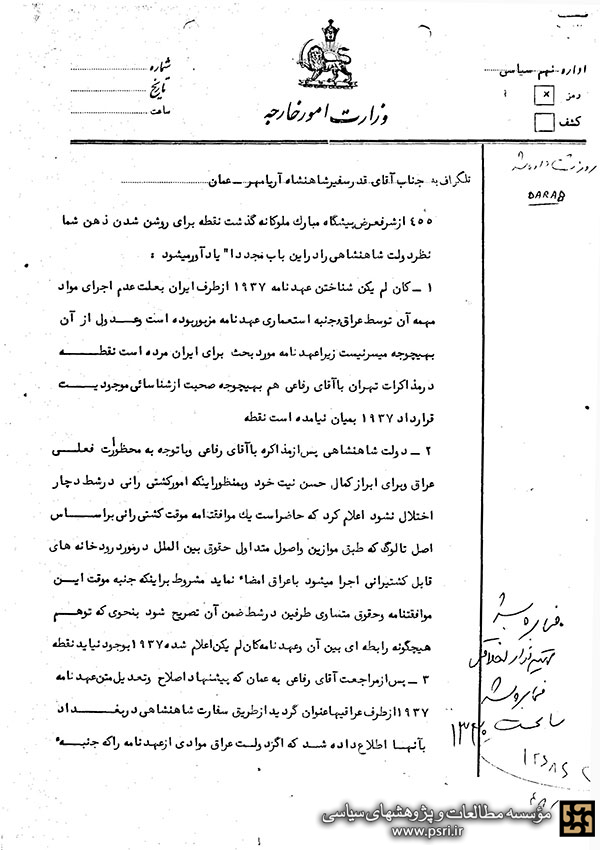 اداره نهم سیاسی
رمز
x
کشف
شماره
تاریخ
ساعت
وزارت امور خارجه
DARAB
تلگراف به جناب آقای قدر سفیر شاهنشاه آریامهر ــ عمان
۴۵۵ از شرفعرض پیشگاه مبارک ملوکانه گذشت نقطه برای روشن شدن ذهن شما
نظر دولت شاهنشاهی را در این باب مجددا" یادآور میشود :
۱ ــ کان لم یکن شناختن عهدنامه ۱۹۳۷ از طرف ایران بعلت عدم اجرای مواد
مهمه آن توسط عراق و جنبه استعماری عهدنامه مزبور بوده است و عدول از آن
بهیچوجه میسر نیست زیرا عهدنامه مورد بحث برای ایران مرده است نقطه
در مذاکرات تهران با آقای رفاعی هم بهیچوجه صحبت از شناسائی موجودیت
قرارداد ۱۹۳۷ بمیان نیامده است نقطه
۲ ــ دولت شاهنشاهی پس از مذاکره با آقای رفاعی و با توجه به محظورت فعلی
عراق و برای ابراز کمال حسن نیت خود و بمنظور اینکه امور کشتی رانی در شط دچار
اختلال نشود اعلام کرد که حاضر است یک موافقتنامه موقت کشتی رانی براساس
اصل تالوگ که طبق موازین و اصول متداول حقوق بین الملل در مورد رودخانه های
قابل کشتیرانی اجرا میشود با عراق امضاء نماید مشروط بر اینکه جنبه موقت این
موافقتنامه و حقوق متساوی طرفین در شط ضمن آن تصریح شود بنحوی که توهم
هیچگونه رابطه ای بین آن و عهدنامه کان لم یکن اعلام شده ۱۹۳۷ بوجود نیاید نقطه
۳ ــ پس از مراجعت آقای رفاعی به عمان که پیشنهاد اصلاح و تعدیل متن عهدنامه
۱۹۳۷ از طرف عراقیها عنوان گردید از طریق سفارت شاهنشاهی در بغداد
بآنها اطلاع داده شد که اگر دولت عراق موادی از عهدنامه را که جنبه
ساعت ۱۳۴۵
مؤسسه مطالعات و پژوهشهای سیاسی
www.psri.ir